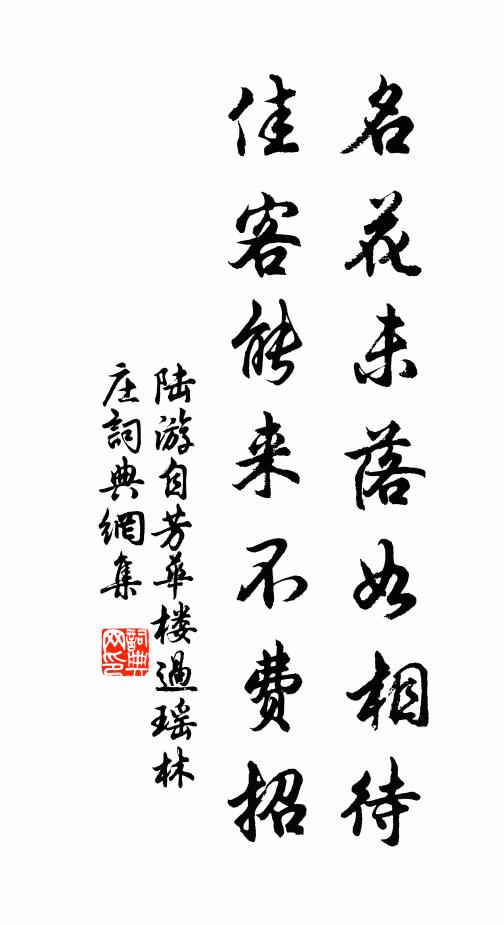 名花未落如相待
佳客能来不费招
陆游自芳華楼過瑶林
庄詞典網集
詞典
网印